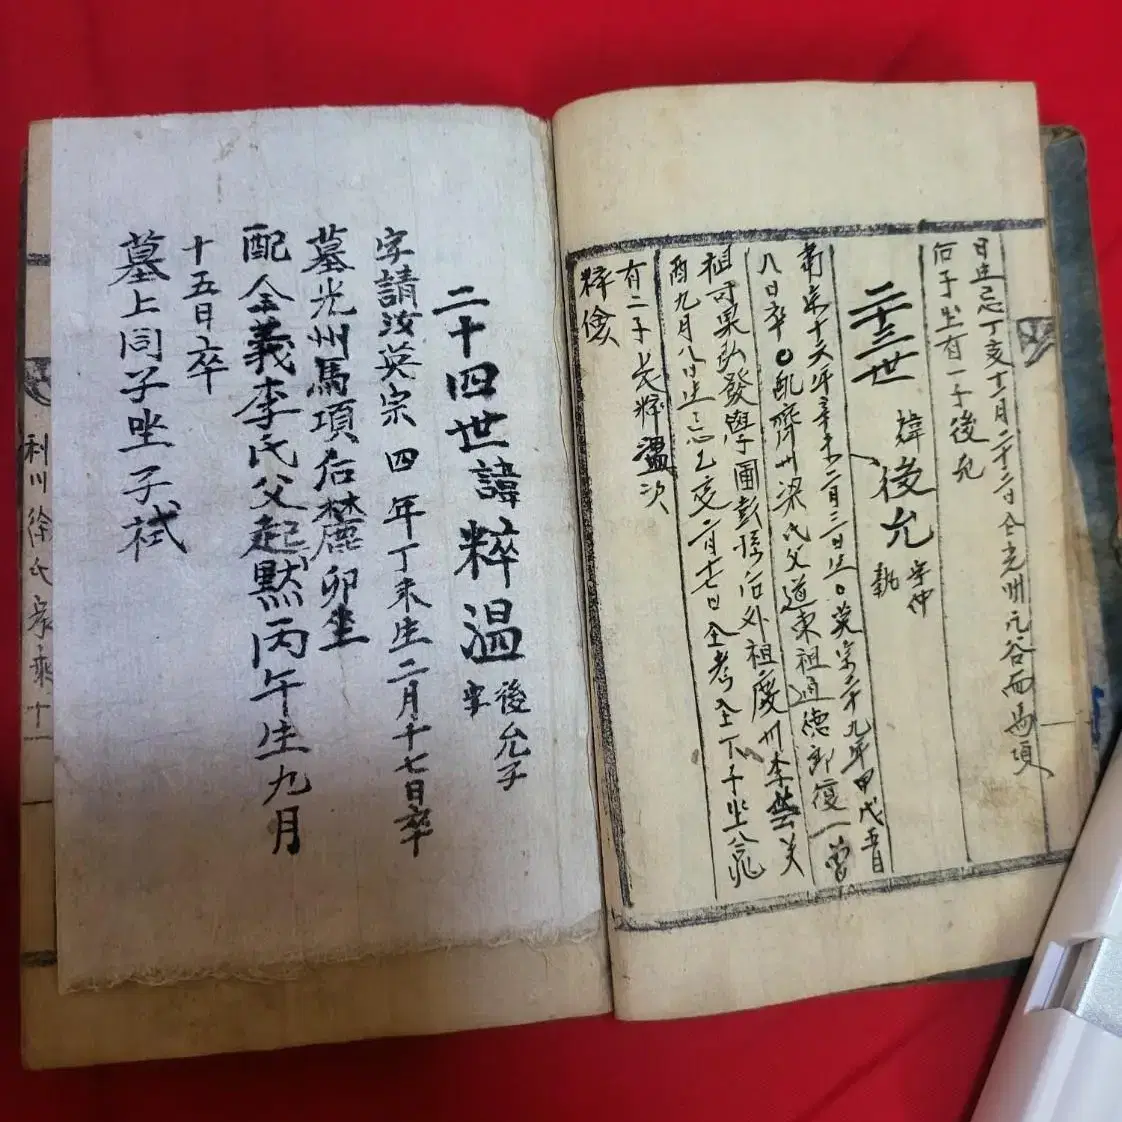 日生忌丁亥十月二十二日仝光州元谷面馬項
后子坐有一子後允
二十三世 諱後允 字仲執
肅宗十六年辛未二月三日生英宗二十九年甲戌五月
八日卒配濟州梁氏父道東祖通德郎復一曾
祖可果外發學圃彭孫后外祖慶州李芸美
酉九月八日生忌乙亥二月十七日仝考仝下子坐合兆
有二子長粹溫次
粹儉
二十四世諱粹溫 後允子 字
字請汝英宗四年丁未生二月十七日卒
墓光州馬項后麓卯坐
配全義李氏父起默丙午生九月
十五日卒
墓上同子坐子栻
利川徐氏家乘 十一